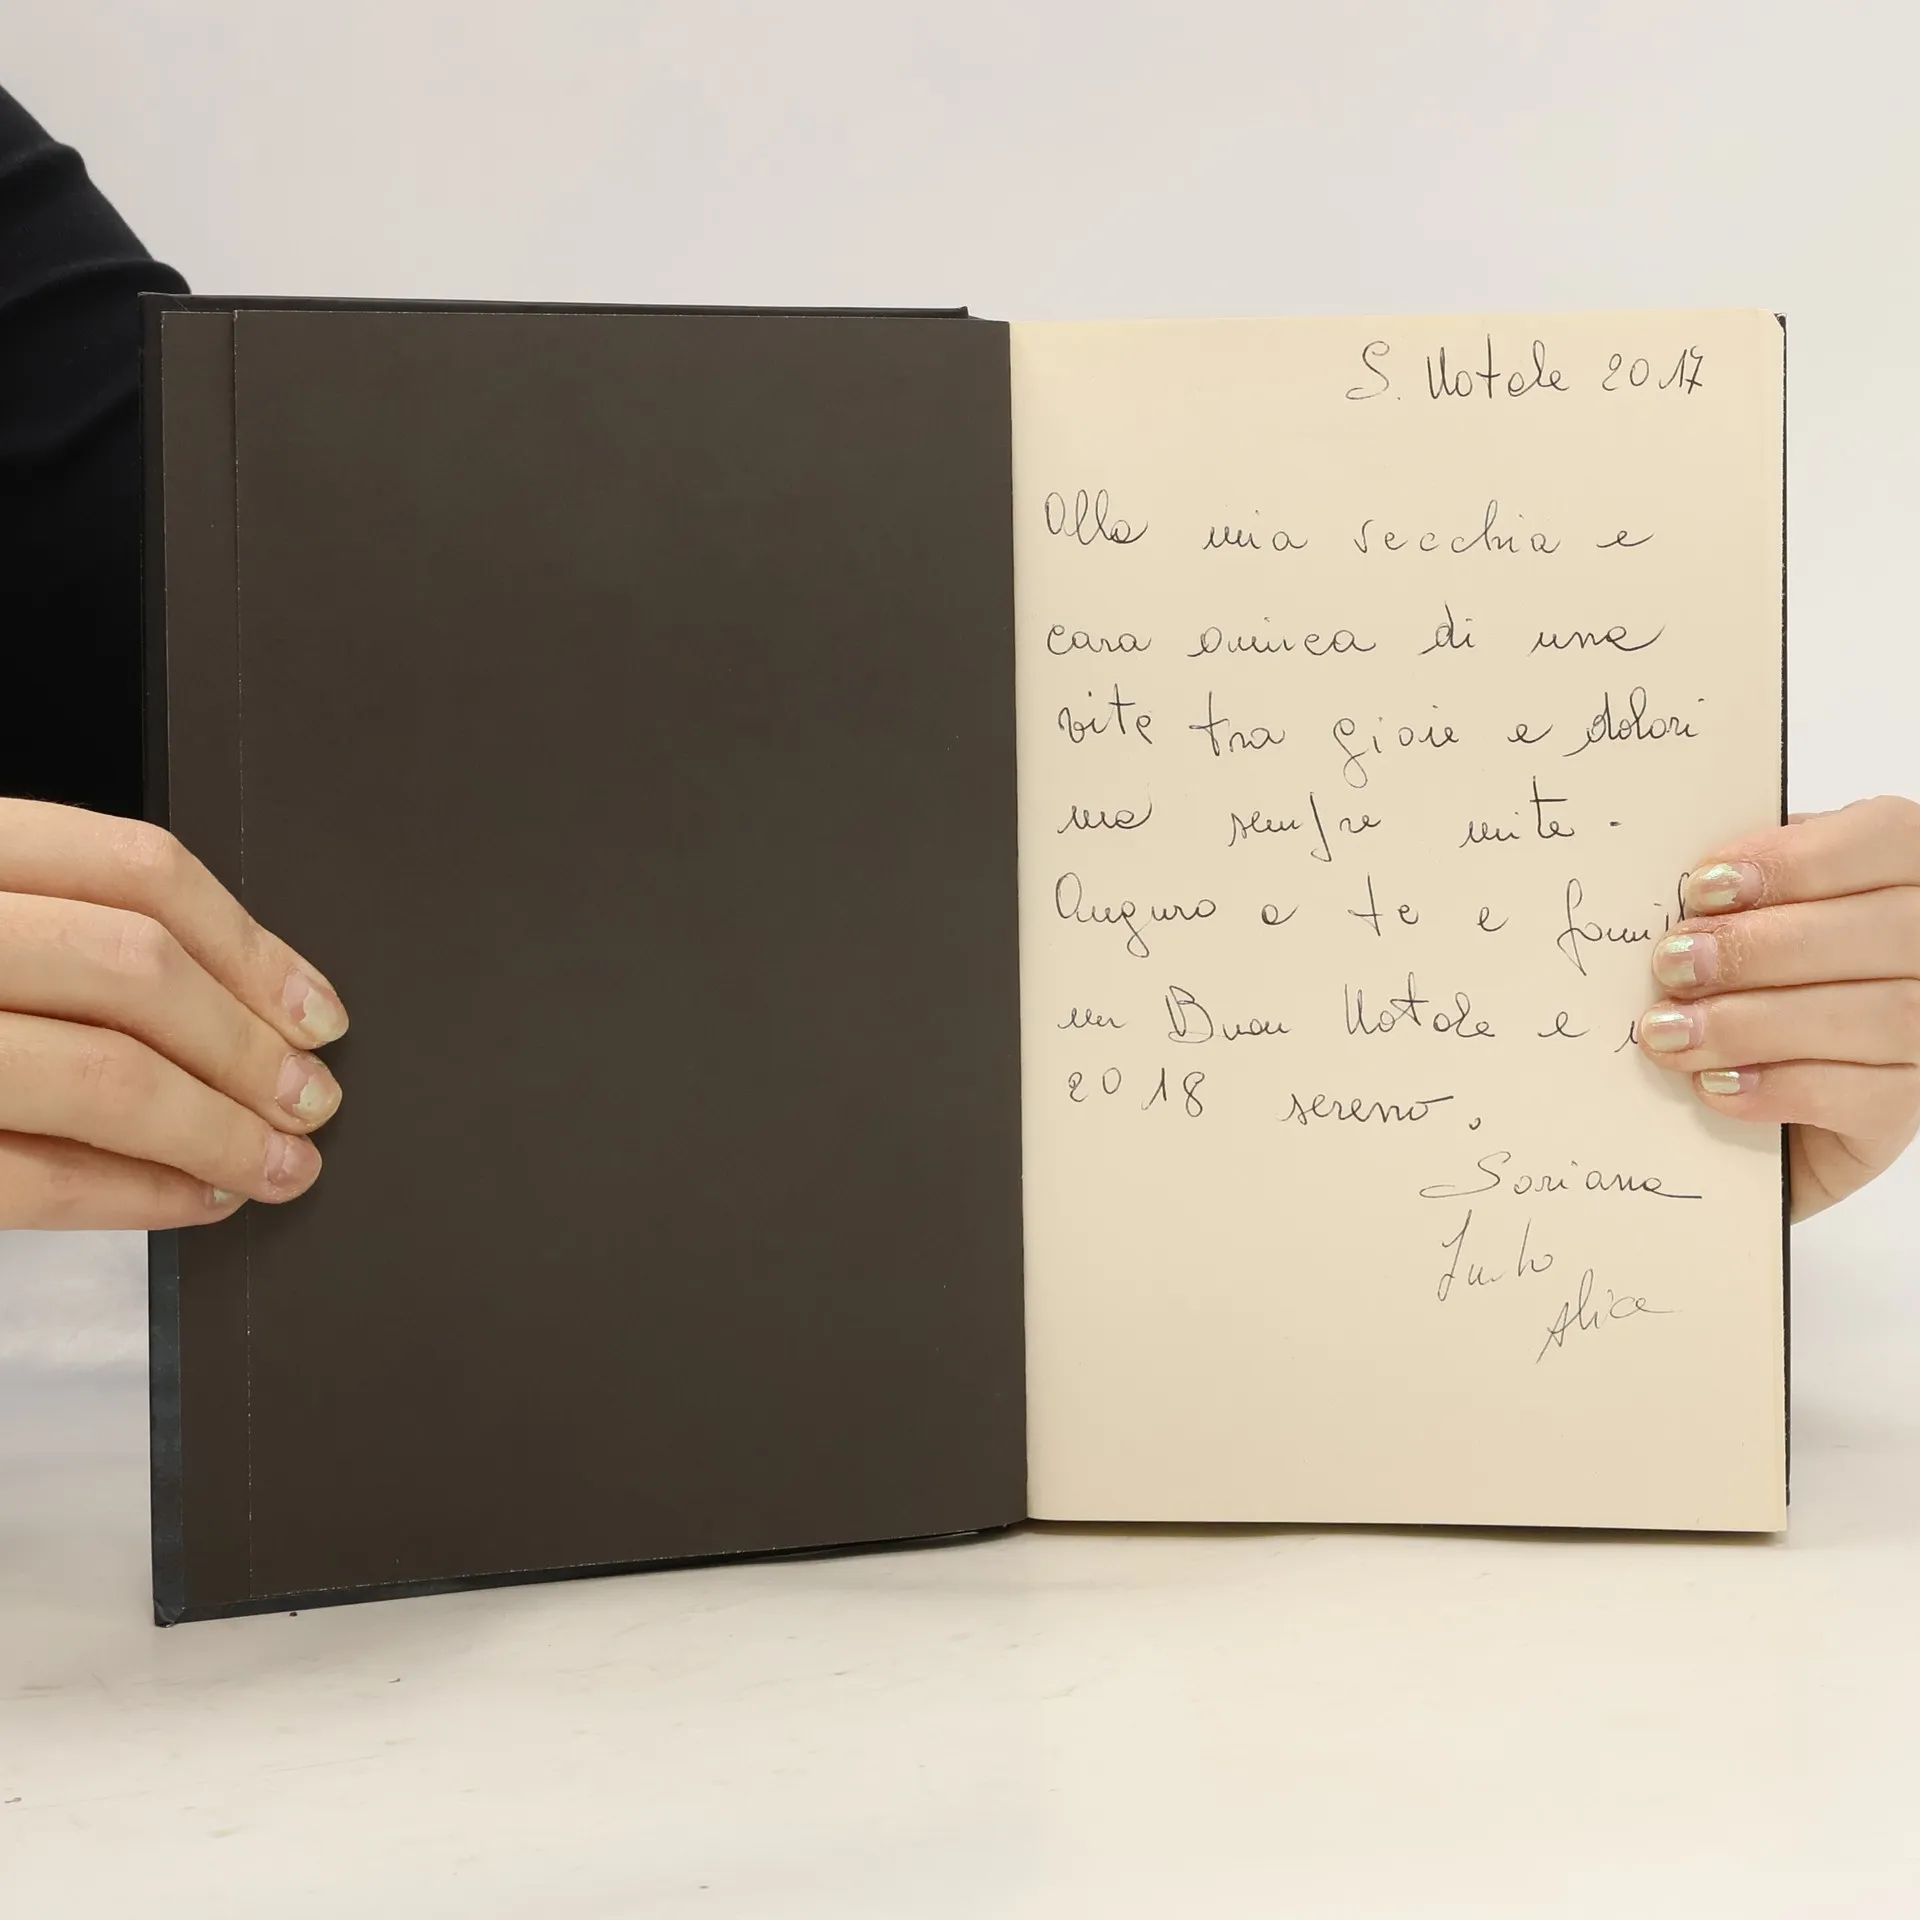 S. Natale 2017
Alla mia vecchia e
cara amica di una
vita tra gioie e dolori
ma sempre unite.
Auguro a te e famil
un Buon Natale e
2018 sereno.
Soriana
Alice